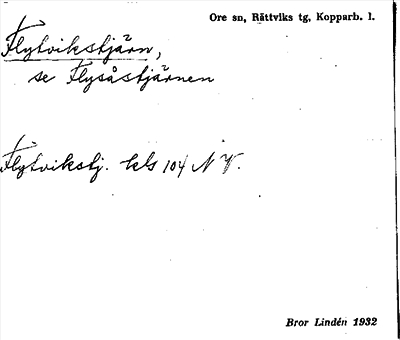 Ore sn, Rättviks tg, Kopparb. l.
Flytvikstjärn,
se Flysåstjärnen
Flytvikstj. kls 104 N V.
Bror Lindén 1932